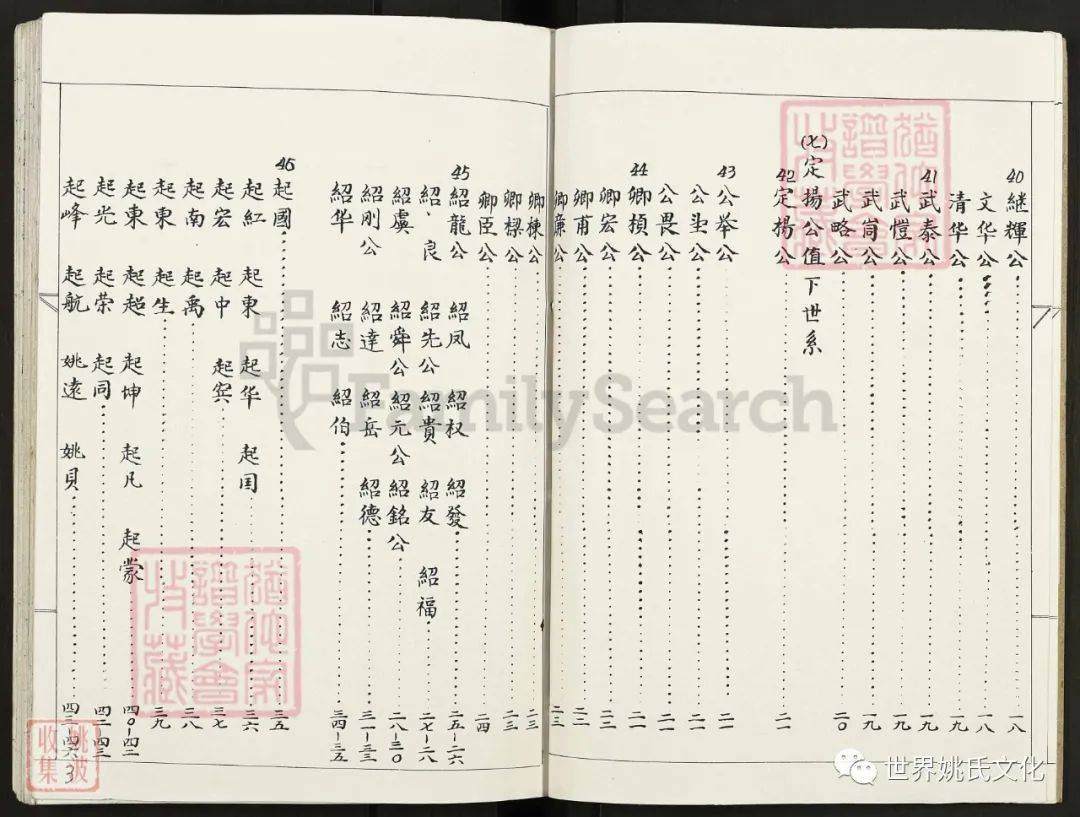 40 继輝公 一八
文华公 一八
清华公 一九
41 武泰公 一九
武愷公 一九
武崗公 一九
武略公 二0
(七)定揚公值下世系
42 定揚公 二一
43 公举公 二一
公坒公 二一
公畏公 二一
44 卿楨公 二一
卿宏公 二二
卿甫公 二二
卿廉公 二三
卿棟公 二三
卿樑公 二三
卿臣公 二四
45 紹龍公 紹凤 紹权 紹發 二五-二六
紹、良 紹先公 紹貴 紹友 紹福 二七-二八
紹虞 紹舜公 紹元公 紹銘公 二八-三0
紹刚公 紹達 紹岳 紹德 三一-三三
紹华 紹志 紹伯 三四-三五
46 起國 三五
起紅 起東 起华 起国 三六
起宏 起中 起宾 三七
起南 起禹 三八
起東 起生 三九
起東 起超 起坤 起凡 起蒙 四0-四二
起光 起荣 起同 四二-四三
起峰 起航 姚遠 姚貝 四三-四六
3
猶他家譜學會收藏
猶他家譜學會收藏
姚波收集
FamilySearch
世界姚氏文化